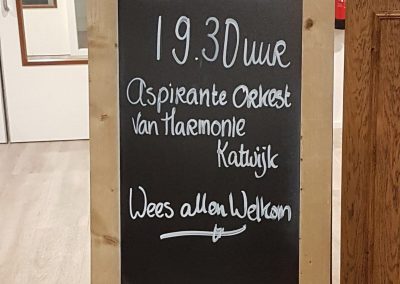 19.30 uur
Aspirante Orkest
Van Harmonie
Katwijk
Wees allen Welkom